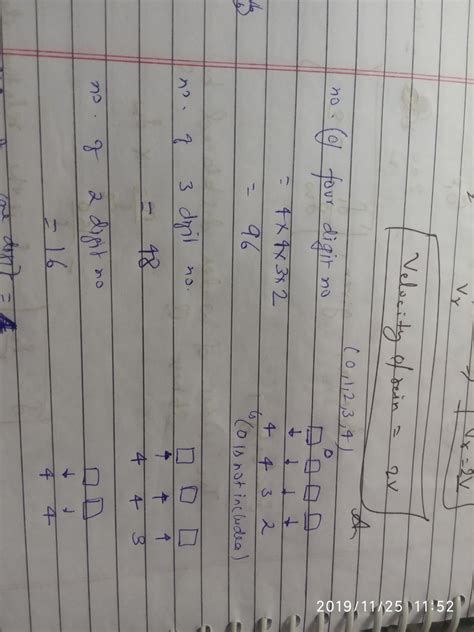 Vx ⇒ Vx = 2V
Velocity of rain = 2V
(0,1,2,3,4)
no. of four digit no
= 4x4x3x2
= 96
0
4 4 3 2
(0 is not included)
no. of 3 digit no.
= 48
4 4 3
no. of 2 digit no
= 16
4 4
one digit = 4
2019/11/25 11:52